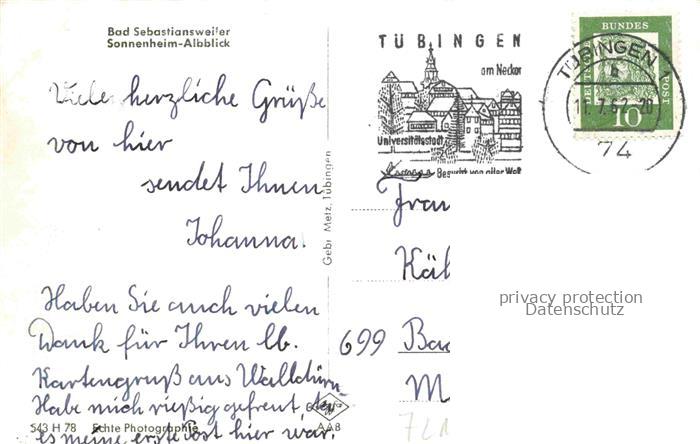 Bad Sebastiansweiler
Sonnenheim-Albblick
Viele herzliche Grüße
von hier
sendet Ihnen
Johanna.
Haben Sie auch vielen
Dank für Ihren lb.
Kartengruß aus Walldürn.
Habe mich riesig gefreut, da
es meine erste Post hier war.
543 H 78 Echte Photographie
AA8
Gebr. Metz, Tübingen
TÜBINGEN
am Neckar
Universitätsstadt
Besucht von aller Welt
TÜBINGEN
74
DEUTSCHE BUNDESPOST
10
Frau
Kät
699 Bad
M
721
privacy protection
Datenschutz